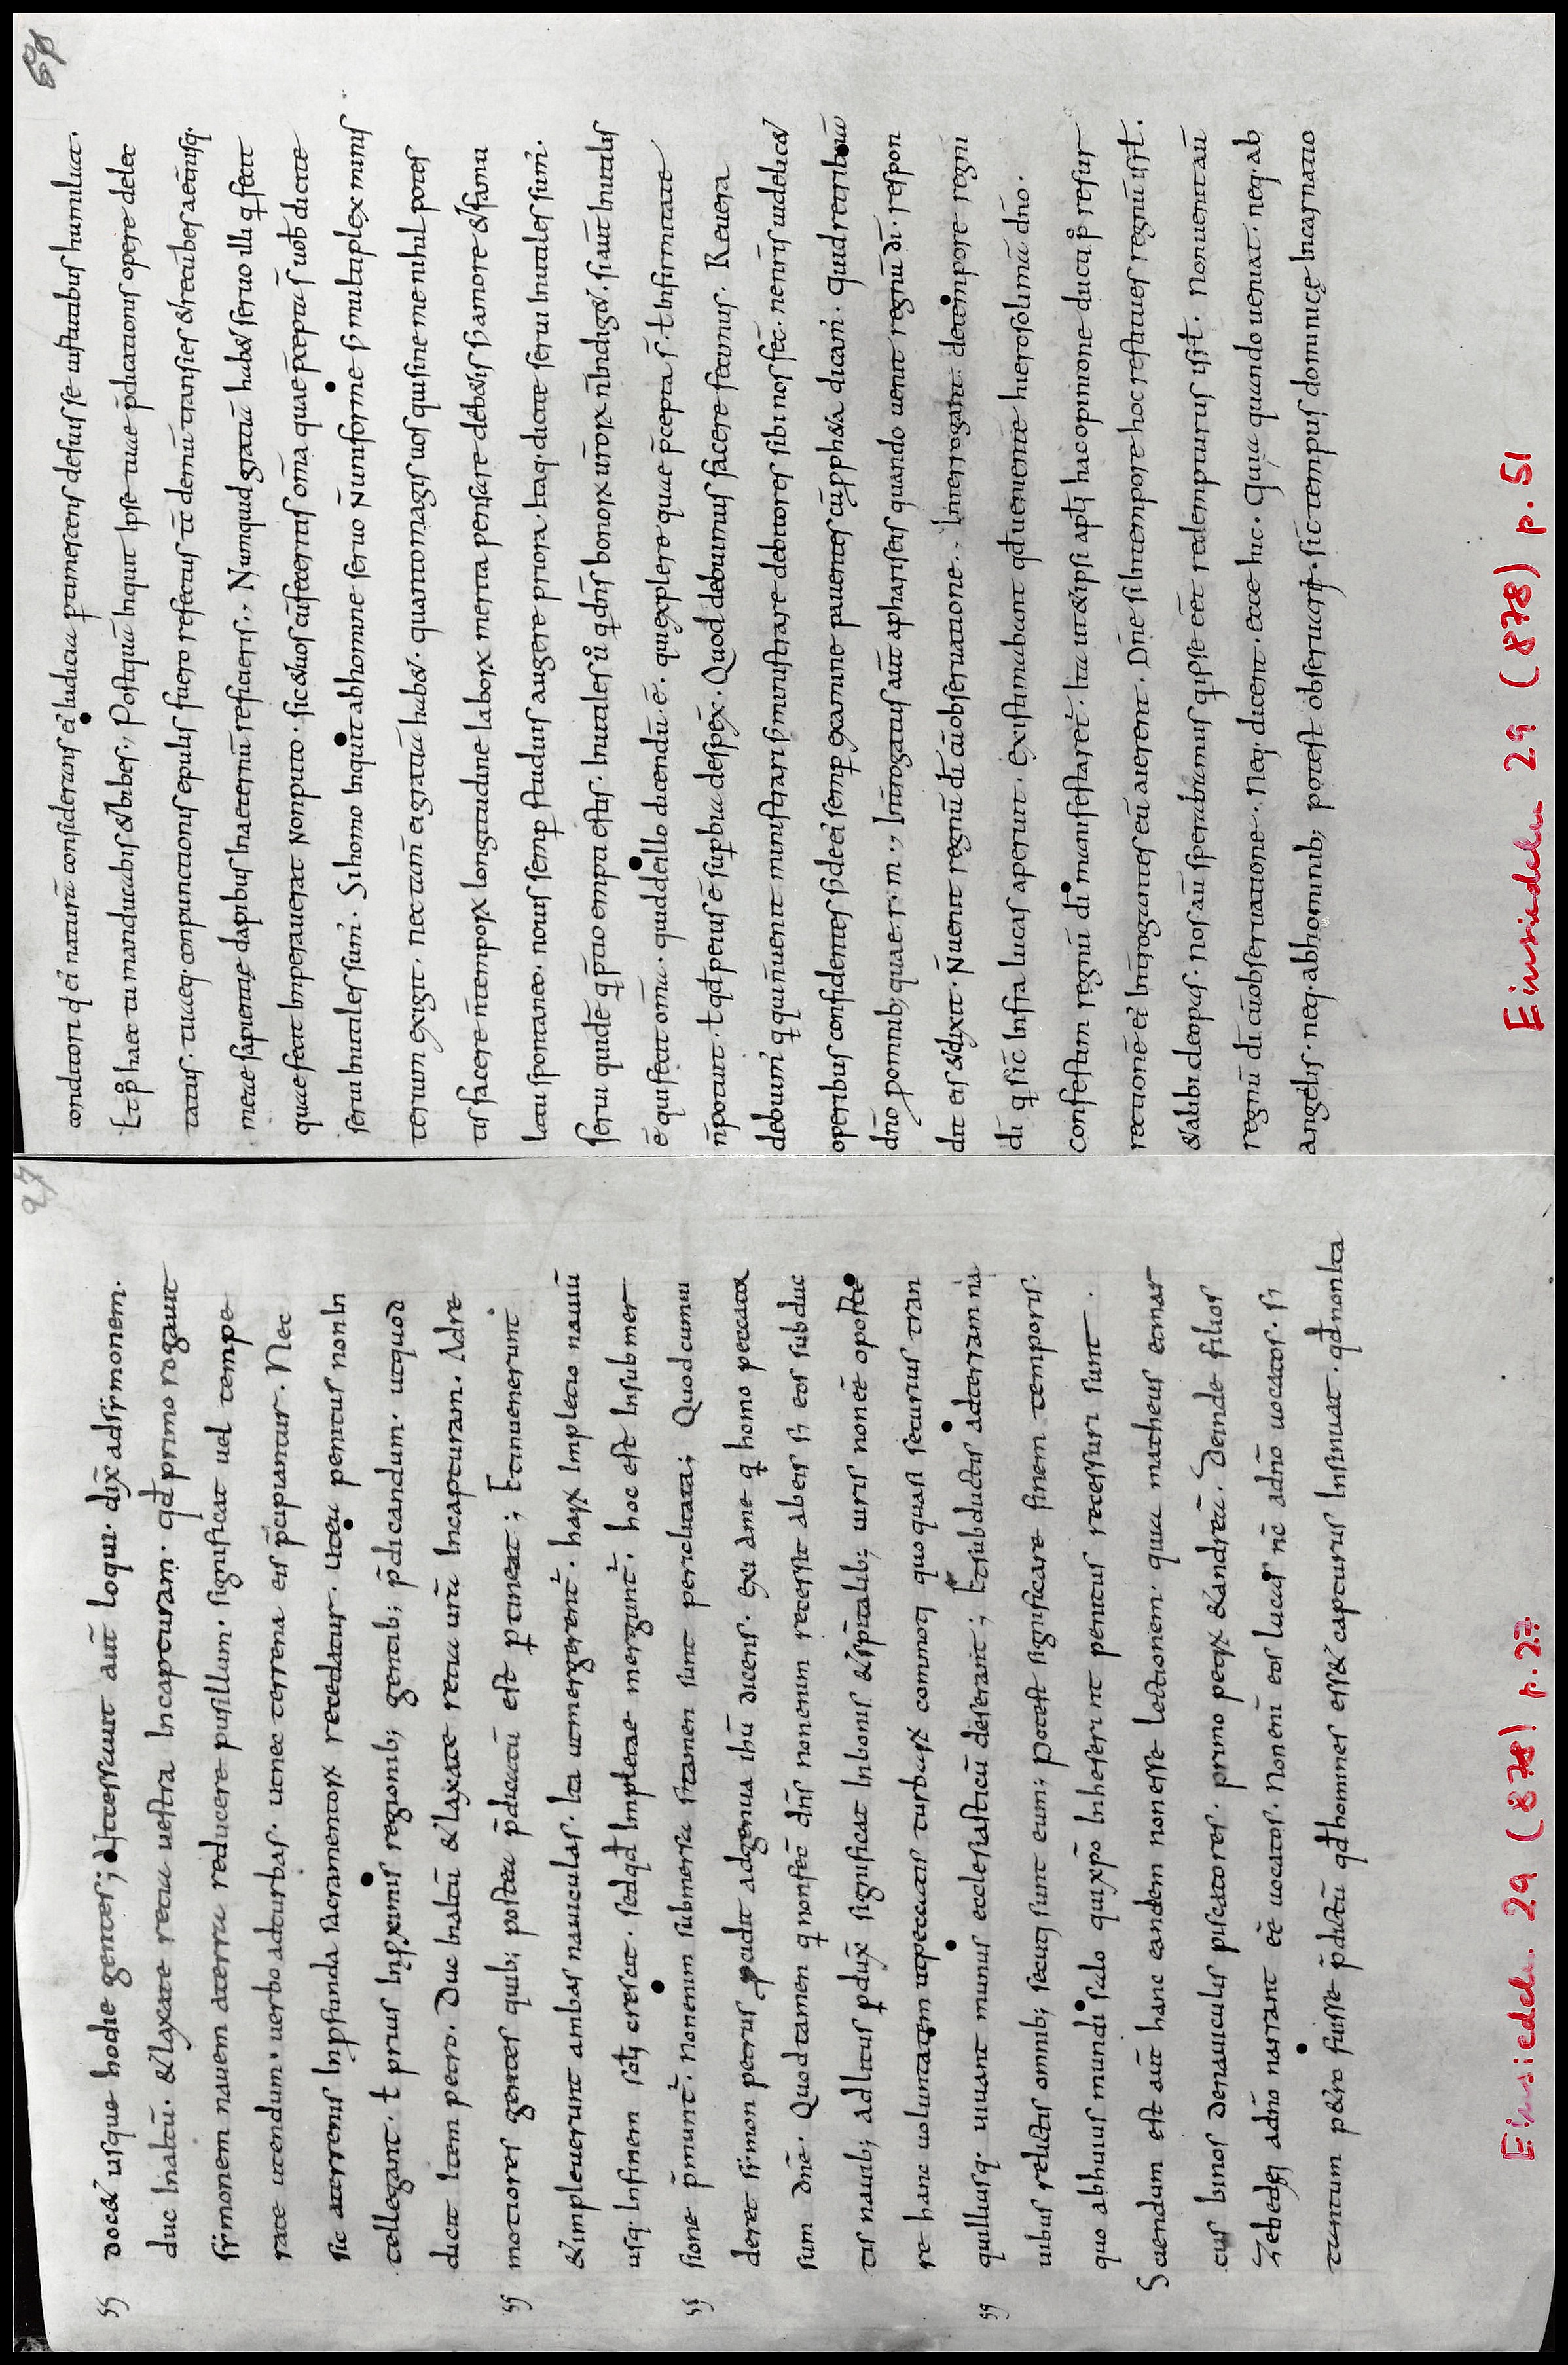 27
docet usque hodie gentes; Ut cessauit aut̄ loqui. dix̄ ad symonem.
duc in altū. & laxate retia uestra in capturam. qđ primo rogauit
symonem nauem a terra reducere pusillum. significat uel tempe
rate utendum. uerbo ad turbas. ut nec terrena eis p̄cipiantur. Nec
sic a terrenis in ꝓfunda sacramentoꝝ recedatur. ut ea penitus non in
tellegant. ł prius in ꝓximis regionib; gentib; p̄dicandum. ut quod
dicit Item petro. Duc in altū & laxate retia ur̄a in capturam. Ad re
motiores gentes quib; postea p̄dicatū est ꝑtineat; Et inuenerunt
& impleuerunt ambas nauiculas. Ita ut mergerent᷑. haꝝ impletio nauiū
usq; in finem sc̄li crescit. sed qđ impletae mergunt᷑. hoc est in submer
sione p̄munt᷑. non enim submersa s; tamen sunt periclitata; Quod cum ui
deret symon petrus ꝓcidit ad genua ihū dicens. exi a me q homo peccator
sum dn̄e. Quod tamen q non fec̄ dn̄s non enim recessit ab eis s; eos subduc
tis nauib; ad litus ꝑdux̄ significat in bonis & sp̄italib; uiris non eē oporte
re hanc uoluntatem ut peccatis turbaꝝ commoti quo quasi securius tran
quilliusq; uiuant munus ecclesiasticū deserant; Et subductis ad terram na
uibus relictis omnib; secuti sunt eum; potest significare finem temporis.
quo ab huius mundi salo qui xp̄o inheserint penitus recessuri sunt.
Sciendum est aut̄ hanc eandem non esse lectionem. quia matheus et mar
cus binos de nauiculis piscatores. primo petꝝ & andreā. Deinde filios
Zebedei a dn̄o narrant eē uocatos. Non enī eos lucas nc̄ a dn̄o uocatos. s;
tantum petro fuisse p̄dictū qđ homines esset capturus insinuat. qđ non ita
Einsiedeln 29 (878) p. 27
51
conditori q ei naturā considerans ei iudicia ꝑtimescens defuisse iustitibus humiliat.
Et p̄ haec tu manducabis & bibes; Postquā inquit ipse tuae p̄dicationis opere delec
tatus. tuaeq; conpunctionis epulis fuero refectus tc̄ demū transies & recūbes aet̄nisq;
meae sapientię dapibus in aeternū reficieris; Numquid gratiā habet seruo illi q fecit
quae fecit imperauerat Non puto. sic & uos cū feceritis om̄a quae p̄cepta s̄ uob̄ dicite
serui inutiles sum᷑. Si homo inquit ab homine seruo n̄ uniforme s; multiplex minis
terium exigit. nec tam̄ ei gratiā habet. quanto magis uos qui sine me nihil potes
tis facere n̄ tempoꝝ longitudine laboꝝ merita pensare debetis s; amore & famu
latu spontaneo. nouis semꝑ studiis augere priora. Itaq; dicite serui inutiles sum᷑.
serui quidē q p̄tio empti estis. Inutiles ů q dn̄s bonoꝝ ur̄oꝝ n̄ indiget. si aut̄ inutilis
ē qui fecit om̄a. quid de illo dicendū ē. qui explere quae p̄cepta s̄. ł infirmitate
n̄ potuit. ł qđ peius ē suꝑbia despex̄. Quod debuimus facere fecimus. Reuera
debuim᷑ q qui n̄ uenit ministrari s; ministrare debitores sibi nos fec̄. ne nr̄is uidelicet
operibus confidentes s; de ei semꝑ examine pauentes cū ꝓpheta dicam᷑. Quid retribuā
dn̄o ꝓ omnib; quae. r. m; Int̄rogatus aut̄ a phariseis quando uenit regnū dī. respon
dit eis & dixit. N̄ uenit regnū dī cū obseruatione. Interrogant de tempore regni
dī q sic̄ infra lucas aperuit. Existimabant qđ ueniente hierosolimā dn̄o.
confestim regnū dī manifestaret᷑. Ita ut & ipsi apłi hac opinione ducti p̄ resur
rectionē ei int̄rogantes eū aierent. Dn̄e si in tempore hoc restitues regnū isrł.
& alibi cleopas. nos aū sperabimus q ipse eēt redempturus isrł. Non uenit aū
regnū dī cū obseruatione. Neq; dicent. ecce hic. Quia quando ueniat. neq; ab
angelis. neq; ab hominib; potest obseruari. sic̄ tempus dominicę incarnatio
Einsiedeln 29 (878) p. 51